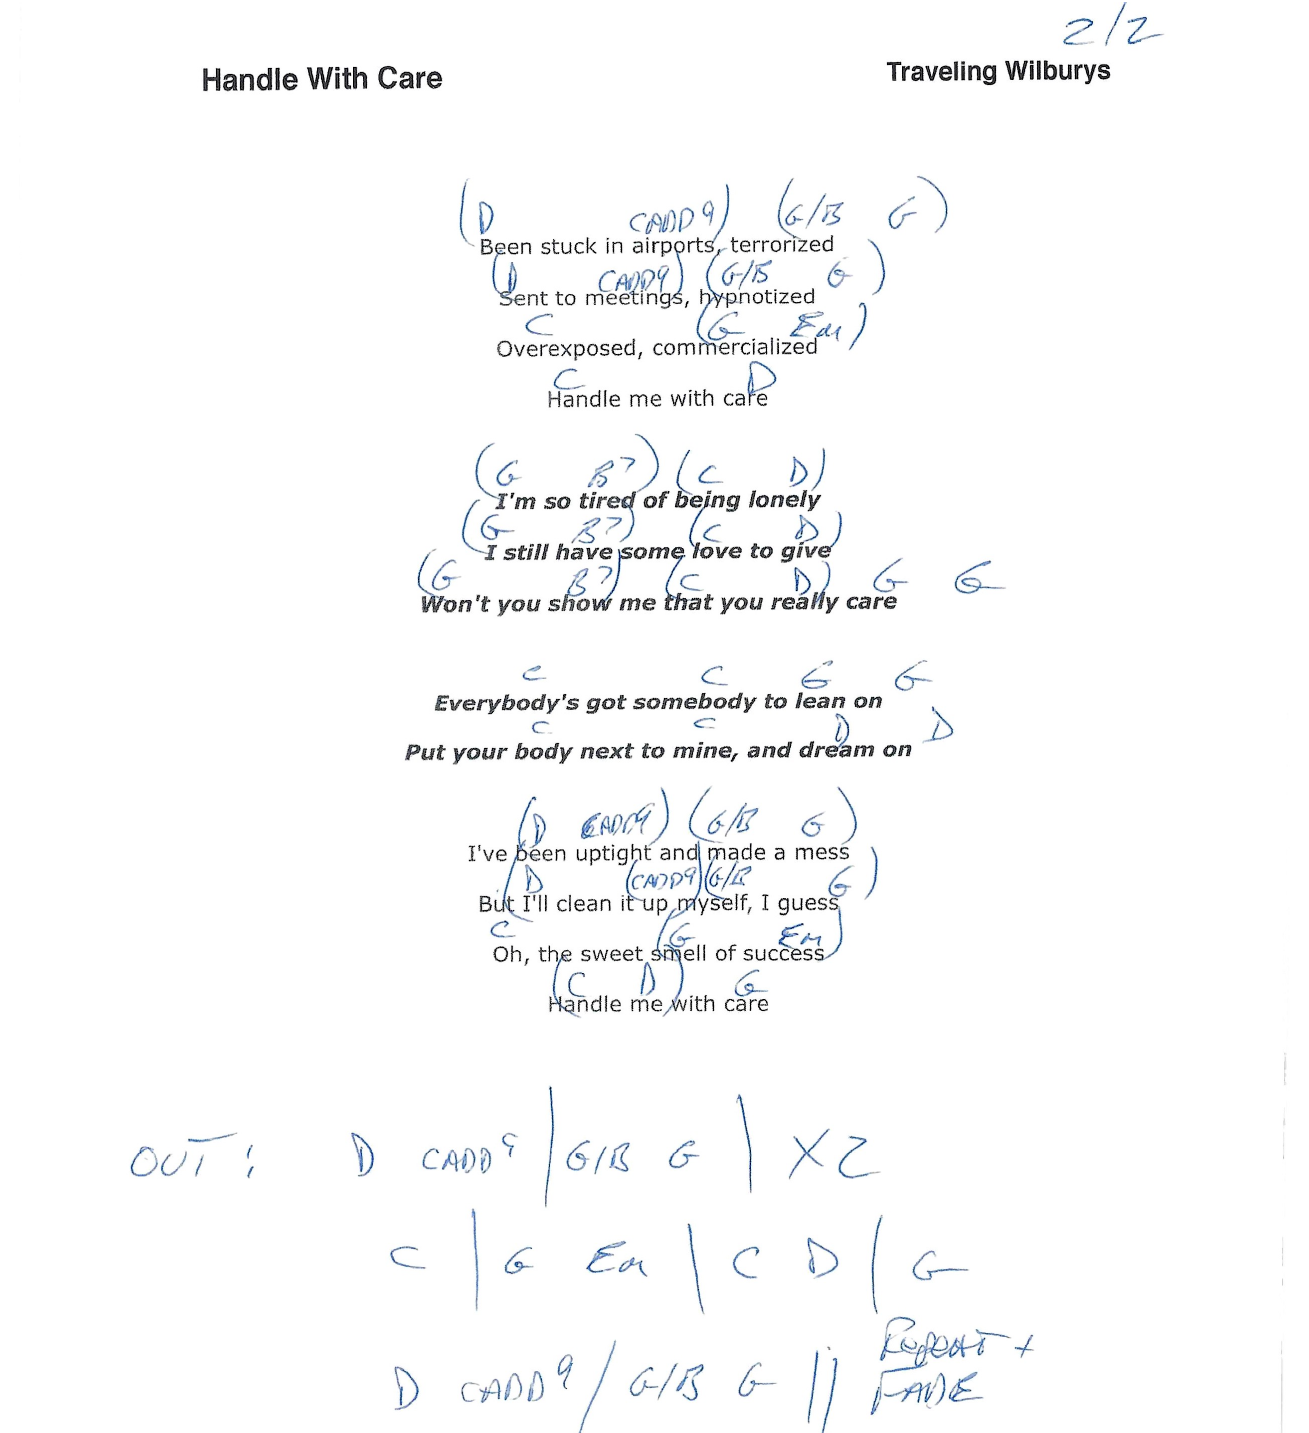 2/2
Handle With Care Traveling Wilburys
(D CADD9) (G/B G)
Been stuck in airports, terrorized
(D CADD9) (G/B G)
Sent to meetings, hypnotized
C (G Em)
Overexposed, commercialized
C D
Handle me with care
(G B7) (C D)
I'm so tired of being lonely
(G B7) (C D)
I still have some love to give
(G B7) (C D) G G
Won't you show me that you really care
C C G G
Everybody's got somebody to lean on
C C D D
Put your body next to mine, and dream on
(D CADD9) (G/B G)
I've been uptight and made a mess
(D (CADD9) (G/B G)
But I'll clean it up myself, I guess
C (G Em)
Oh, the sweet smell of success
(C D) G
Handle me with care
OUT: D CADD9 | G/B G | X2
C | G Em | C D | G
D CADD9 / G/B G || REPEAT + FADE